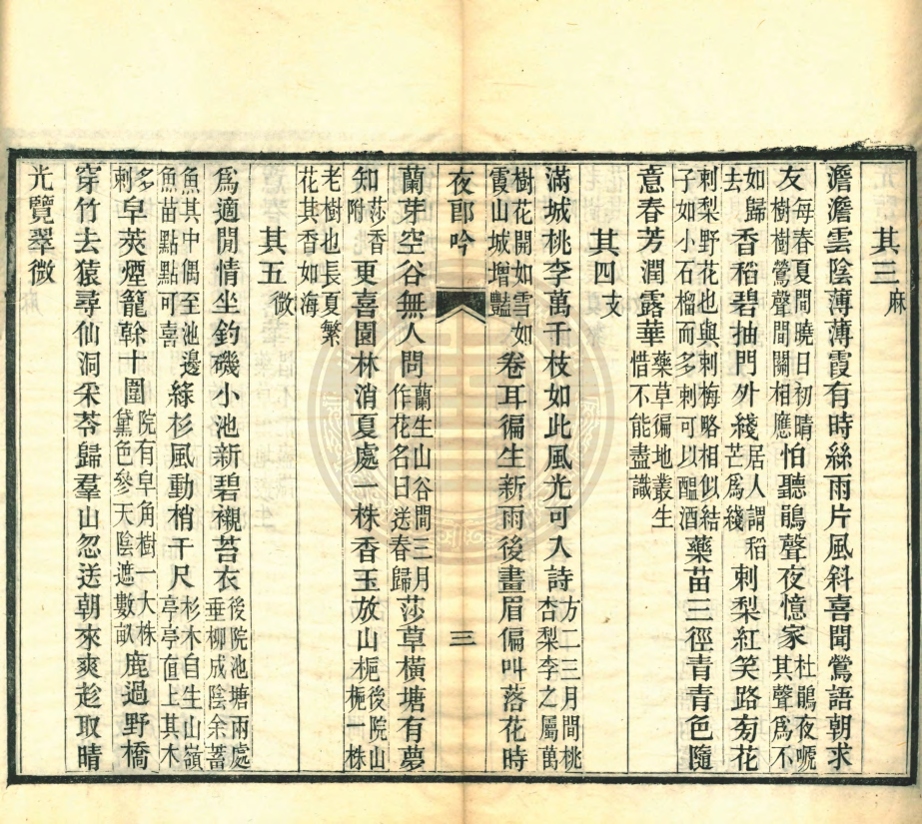 其三麻
澹澹雲陰薄薄霞有時絲雨片風斜喜聞鶯語朝求
友每春夏間曉日初晴樹樹鶯聲間關相應怕聽鵑聲夜憶家杜鵑夜嗁其聲爲不
如歸去香稻碧抽門外綫居人謂稻芒爲綫刺梨紅笑路旁花
刺梨野花也與刺梅略相似結子如小石榴而多刺可以醖酒藥苗三徑青青色隨
意春芳潤露華藥草徧地叢生惜不能盡識
其四支
滿城桃李萬千枝如此風光可入詩方二三月間桃杏梨李之屬萬
樹花開如雪如霞山城增豔卷耳徧生新雨後畫眉偏叫落花時
夜郎吟
三
蘭芽空谷無人問蘭生山谷間三月作花名曰送春歸莎草橫塘有夢
知莎香附更喜園林消夏處一株香玉放山梔後院山梔一株
老樹也長夏繁花其香如海
其五微
爲適閒情坐釣磯小池新碧襯苔衣後院池塘兩處垂柳成陰余蓄
魚其中偶至池邊魚苗點點可喜緣杉風動梢千尺杉木自生山嶺亭亭直上其木
多刺皁莢煙籠榦十圍院有皁角樹一大株黛色參天陰遮數畝鹿過野橋
穿竹去猿尋仙洞采苓歸羣山忽送朝來爽趁取晴
光覽翠微